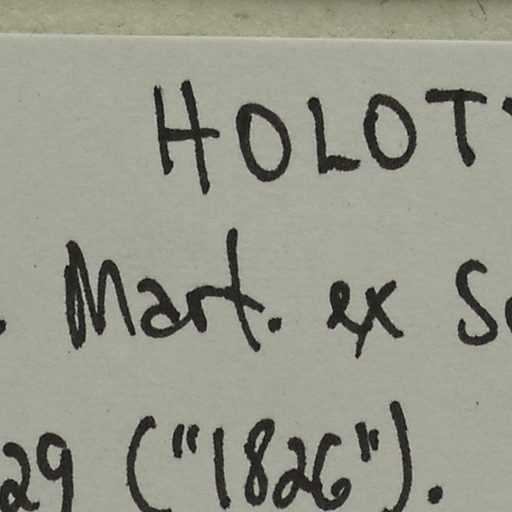 HOLOT
. Mart. ex S
29 ("1826").